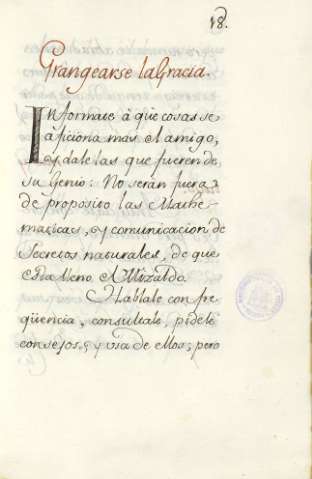 18.
Grangearse la Gracia.
Informate à què cosas se
aficiona mas el amigo,
y dale las que fueren de
su Genio: No seràn fuera
de proposito las Mathe-
maticas, y comunicacion de
Secretos naturales, de que
està lleno el Mizaldo.
Hablale con fre-
qüencia, consultale, pidele
consejos, y usa de ellos; pero